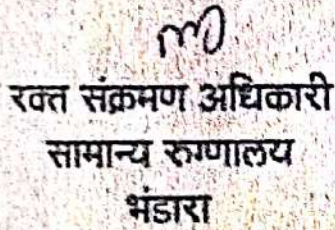 रक्त संक्रमण अधिकारी
सामान्य रुग्णालय
भंडारा